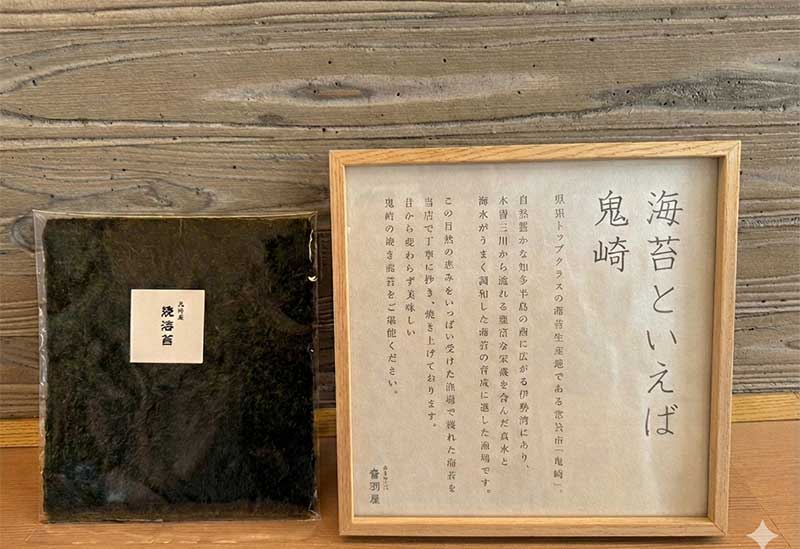 海苔といえば
鬼崎
県果トップクラスの海苔生産地である常滑市「鬼崎」。
自然豊かな知多半島の西に広がる伊勢湾にあり、
木曽三川から流れる豊富な栄養を含んだ真水と
海水がうまく調和した海苔の育成に適した漁場です。
この自然の恵みをいっぱい受けた漁場で獲れた海苔を
当店で丁寧に抄き、焼き上げております。
昔から変わらず美味しい
鬼崎の焼き海苔をご堪能ください。
焼海苔